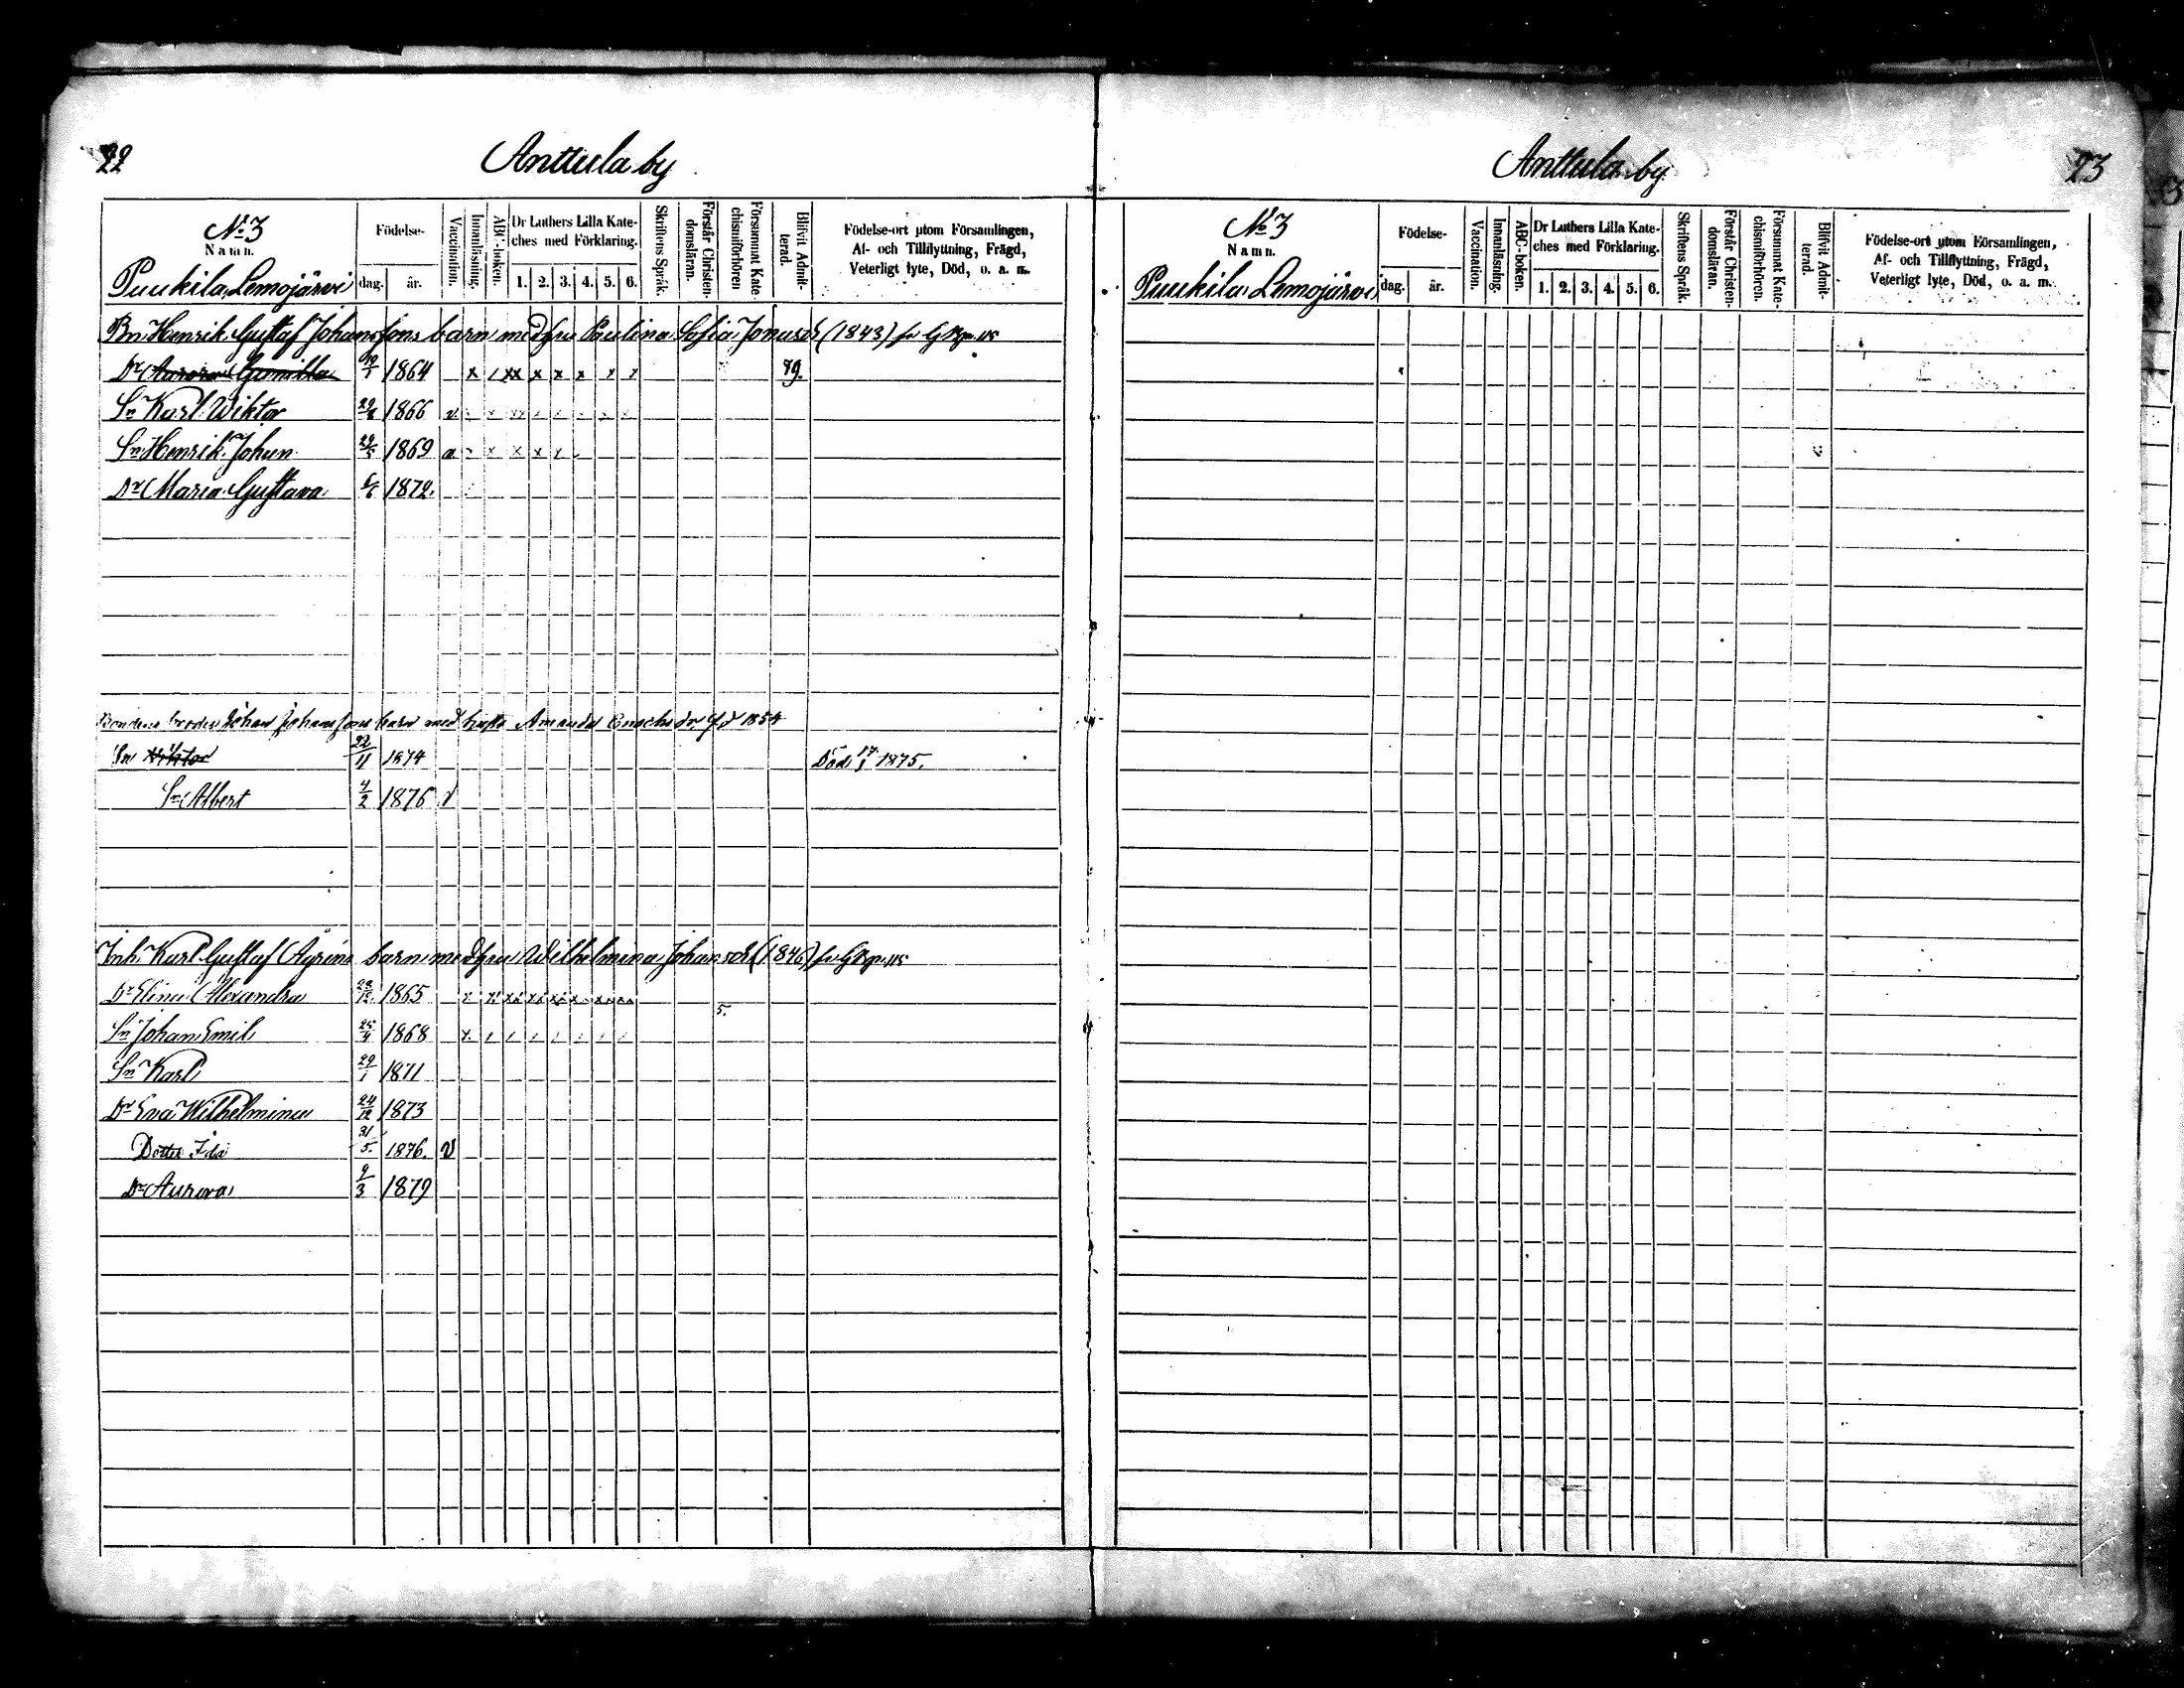 22
Anttula by
No 3
Namn.
Puukila, Lemojärvi
Födelse-
dag.
år.
Vaccination.
Innanläsning.
ABC-boken.
Dr Luthers Lilla Kate-
ches med Förklaring.
1. 2. 3. 4. 5. 6.
Skriftens Språk.
Förstår Christen-
domsläran.
Försummat Kate-
chismiförhören
Blifvit Admit-
terad.
Födelse-ort utom Församlingen,
Af- och Tillflyttning, Frägd,
Veterligt lyte, Död, o. a. m.
Bn Henrik Gustaf Johanssons barn med hu Paulina Sofia Jonasd (1843)
Dr Aurora Gunilla 1864 x / xx x x x x x 79.
Sn Karl Wiktor 1866 v
Sn Henrik Johan 1869
Dr Maria Gustava 1872.
Bondens broder Johan Johanssons barn med hustr Amanda Enochs dr. f.d 1854
Sn Wiktor 22/11 1874 Död 17/1 1875.
Sn Albert 4/2 1876 v
Inh. Karl Gustaf barn med hu Wilhelmina Johansd (1846)
Dr Elina Alexandra 1865
5.
Sn Johan Emil 25/4 1868 x
Sn Karl 29/1 1871
Dr Eva Wilhelmina 24/12 1873
Dotter Ida 31/5. 1876. v
Dr Aurora 9/3 1879
Anttula by
23
No 3
Namn.
Puukila Lemojärvi
Födelse-
dag.
år.
Vaccination.
Innanläsning.
ABC-boken.
Dr Luthers Lilla Kate-
ches med Förklaring.
1. 2. 3. 4. 5. 6.
Skriftens Språk.
Förstår Christen-
domsläran.
Försummat Kate-
chismiförhören.
Blifvit Admit-
terad.
Födelse-ort utom Församlingen,
Af- och Tillflyttning, Frägd,
Veterligt lyte, Död, o. a. m.